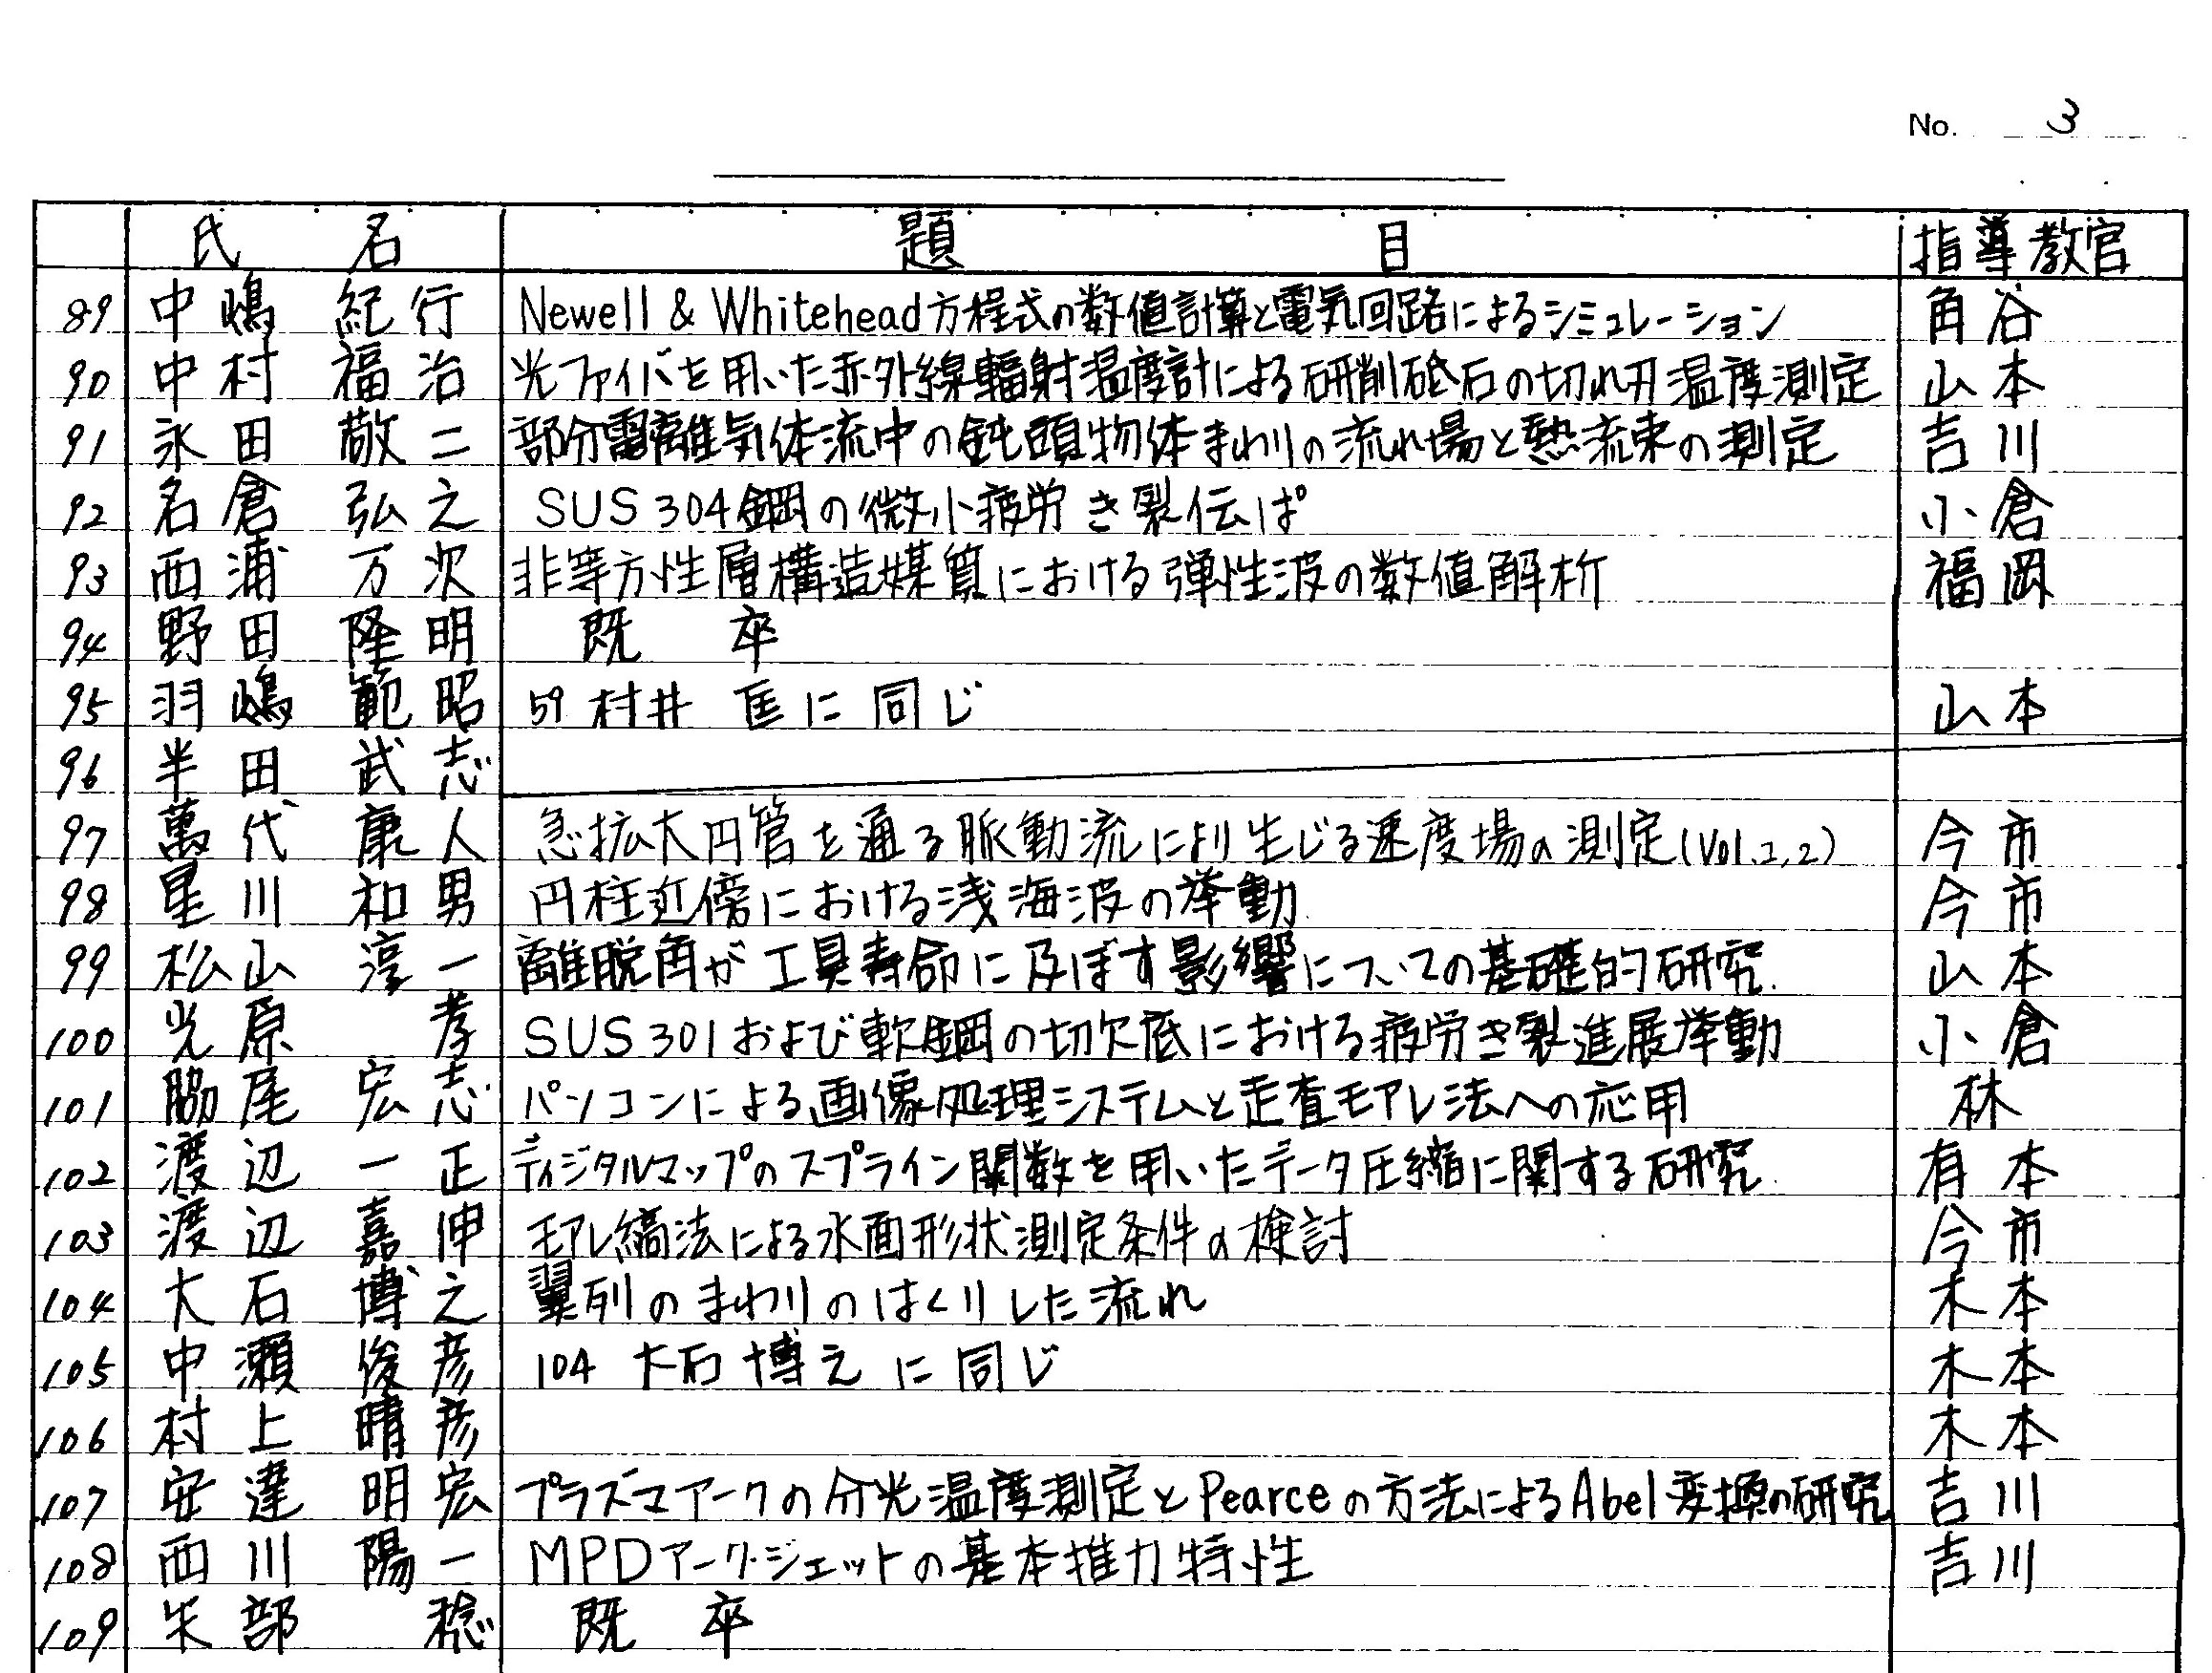 No. 3
氏名 題目 指導教官
89 中嶋 紀行 Newell & Whitehead方程式の数値計算と電気回路によるシミュレーション 角谷
90 中村 福治 光ファイバを用いた赤外線輻射温度計による研削砥石の切れ刃温度測定 山本
91 永田 敬二 部分電離気体流中の鈍頭物体まわりの流れ場と熱流束の測定 吉川
92 名倉 弘之 SUS304鋼の微小疲労き裂伝ぱ 小倉
93 西浦 万次 非等方性層構造媒質における弾性波の数値解析 福岡
94 野田 隆明 既卒
95 羽嶋 範昭 59 村井 匡に同じ 山本
96 半田 武志
97 萬代 康人 急拡大円管を通る脈動流により生じる速度場の測定(Vol.1,2) 今市
98 星川 和男 円柱近傍における浅海波の挙動 今市
99 松山 淳一 離脱角が工具寿命に及ぼす影響についての基礎的研究. 山本
100 光原 孝 SUS301および軟鋼の切欠底における疲労き裂進展挙動 小倉
101 脇尾 宏志 パソコンによる画像処理システムと走査モアレ法への応用 林
102 渡辺 一正 ディジタルマップのスプライン関数を用いたデータ圧縮に関する研究. 有本
103 渡辺 嘉伸 モアレ縞法による水面形状測定条件の検討 今市
104 大石 博之 翼列のまわりのはくりした流れ 木本
105 中瀬 俊彦 104 大石博之に同じ 木本
106 村上 晴彦 木本
107 安達 明宏 プラズマアークの分光温度測定とPearceの方法によるAbel変換の研究 吉川
108 西川 陽一 MPDアーク・ジェットの基本推力特性 吉川
109 矢部 稔 既卒